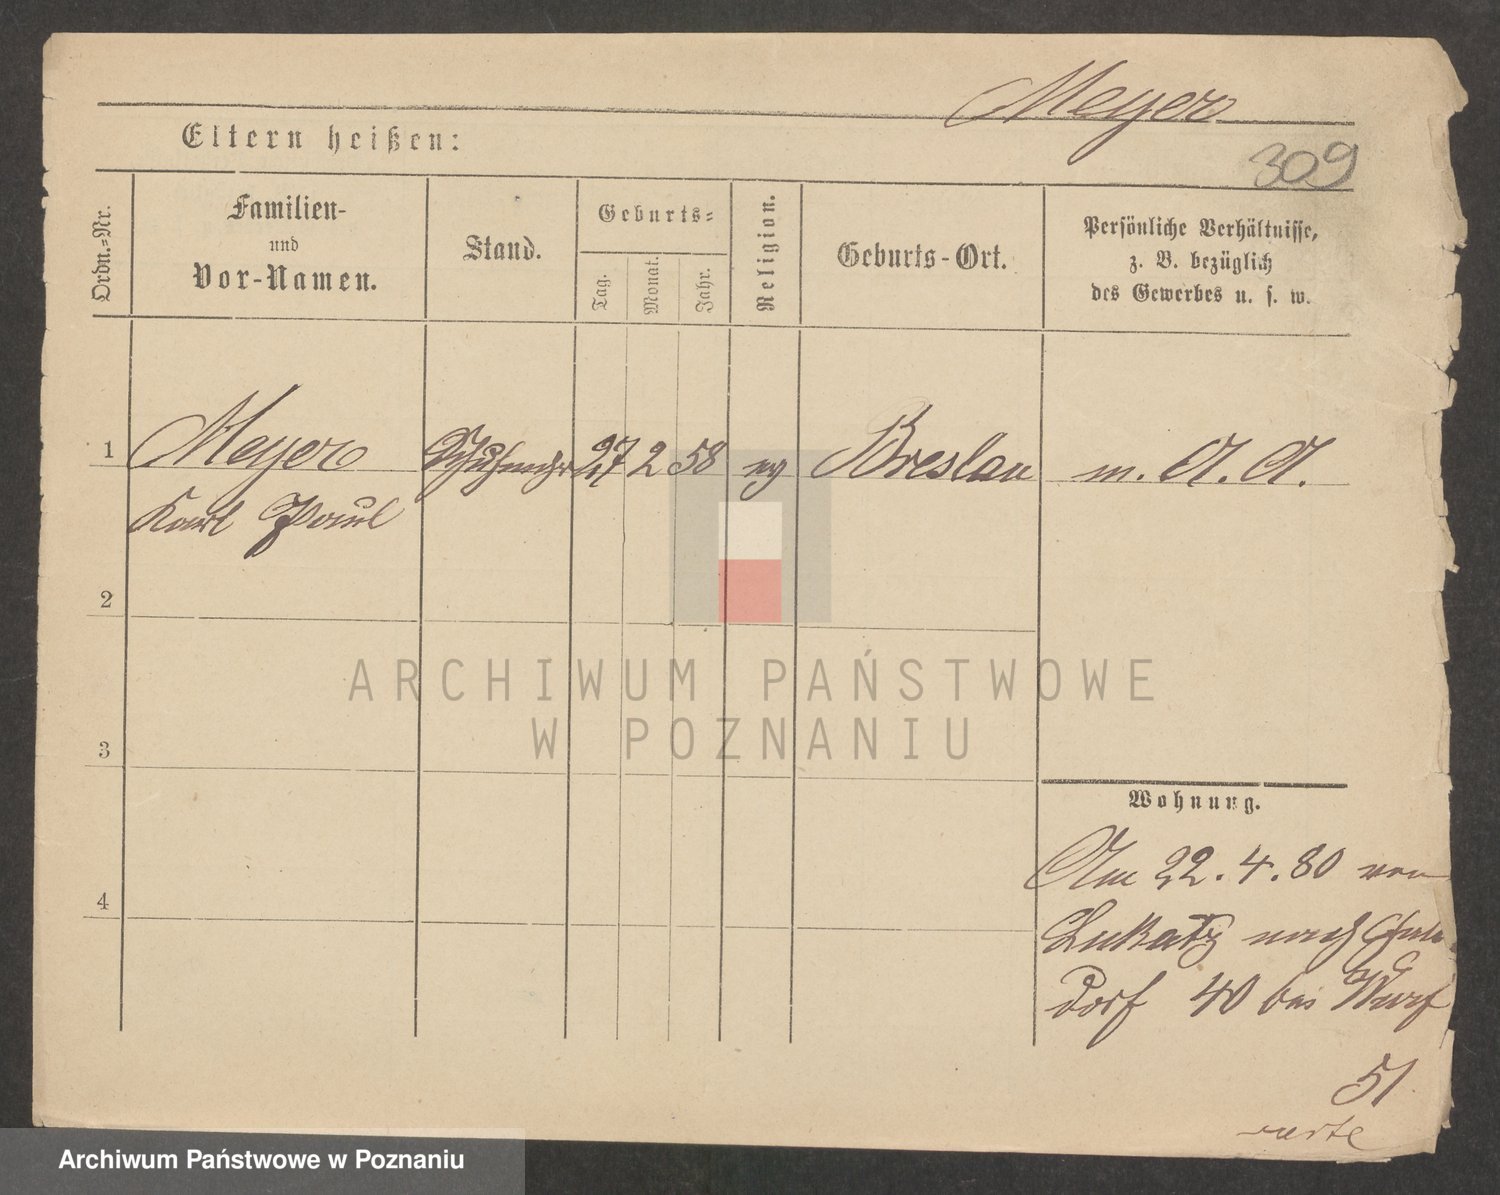 Meyer
309
Eltern heißen:
Ordn.=Nr.
Familien-
und
Vor-Namen.
Stand.
Geburts=
Tag.
Monat.
Jahr.
Religion.
Geburts-Ort.
Persönliche Verhältnisse,
z. B. bezüglich
des Gewerbes u. s. w.
1 Meyer 27 2 58 Breslau m. A. A.
Karl Paul
2
3
4
Wohnung.
Am 22.4.80 von
Lukatz nach
dorf 40 bei Wurf
51
verte
ARCHIWUM PAŃSTWOWE
W POZNANIU
Archiwum Państwowe w Poznaniu